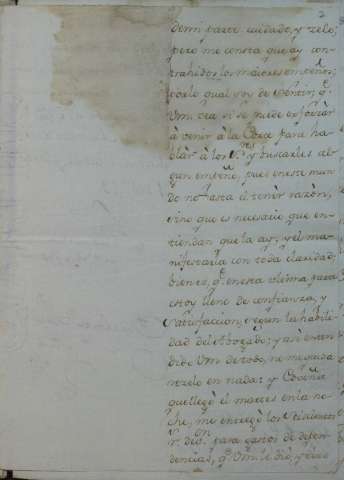 de mi parte cuidado, y zelo;
pero me consta que ay con-
trahidos los maiores empeños;
por lo qual soy de sentir, q.e
Vm. vea si se puede esforzar
à venir à la para ha-
blàr à los S.res y buscarles al-
gun empeño, pues en este mun-
do no basta el tener razòn,
sino que es necesario que en-
tiendan que la ay; y el ma-
nifestarla con toda claridad,
bien es, q.e en esta ultima parte
estoy lleno de confianza, y
satisfaccion, segun la habili-
dad del Abogado; y asi enten-
dido Vm. de todo, no me
rezelo en nada: y
que llegò el martes en la no-
che, me entregò los
para gastos de depen-
dencias, q.e Vm. le diò, pero